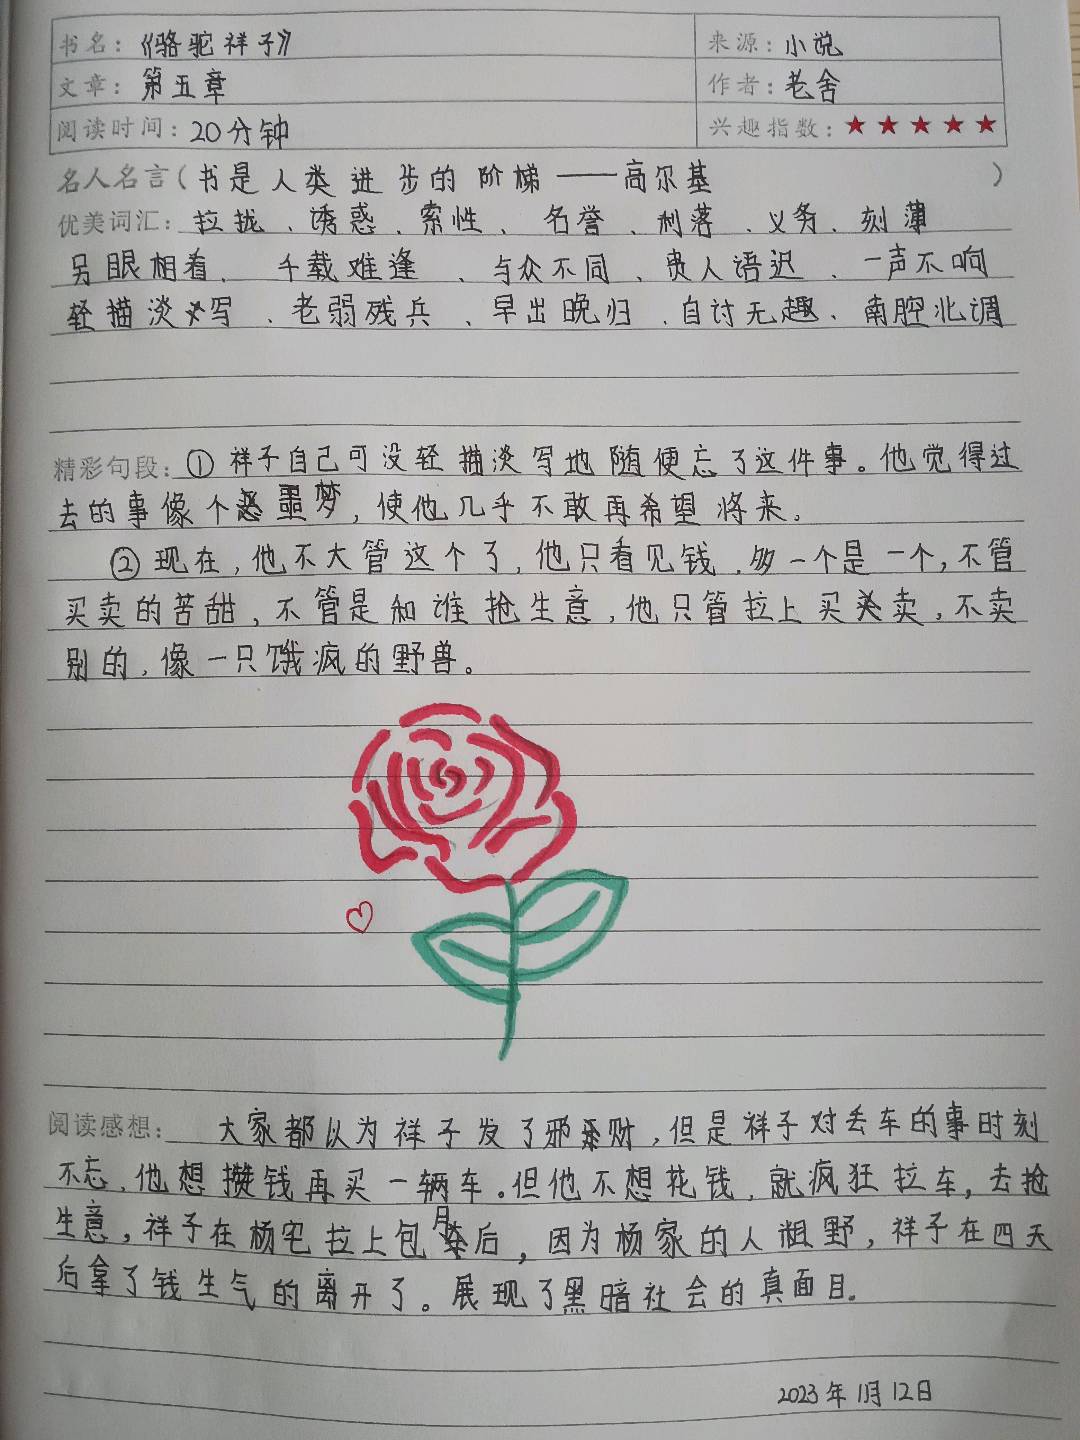 书名：《骆驼祥子》 来源：小说
文章：第五章 作者：老舍
阅读时间：20分钟 兴趣指数：★★★★★
名人名言（书是人类进步的阶梯——高尔基）
优美词汇：拉拢、诱惑、索性、名誉、利落、义务、刻薄
另眼相看、千载难逢、与众不同、贵人语迟、一声不响
轻描淡写、老弱残兵、早出晚归、自讨无趣、南腔北调
精彩句段：①祥子自己可没轻描淡写地随便忘了这件事。他觉得过
去的事像个噩梦，使他几乎不敢再希望将来。
②现在，他不大管这个了，他只看见钱，多一个是一个，不管
买卖的苦甜，不管是和谁抢生意，他只管拉上买卖，不卖
别的，像一只饿疯的野兽。
阅读感想：大家都以为祥子发了邪财，但是祥子对丢车的事时刻
不忘，他想攒钱再买一辆车。但他不想花钱，就疯狂拉车，去抢
生意，祥子在杨宅拉上包月后，因为杨家的人粗野，祥子在四天
后拿了钱生气的离开了。展现了黑暗社会的真面目。
2023年1月12日